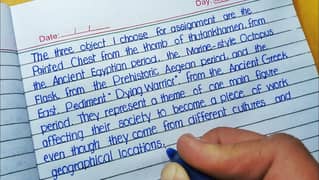 Date: / /
Day:
The three object I choose for assignment are the
Painted Chest from the thomb of thutankhamen, from
the Ancient Egyptian period, the Marine-style Octopus
Flask from the Prehistoric Aegean period, and the
East Pediment "Dying Warrior" from the Ancient Greek
period. They represent a theme of one main figure
affecting their society to become a piece of work
even though they come from different cultures and
geographical locations.